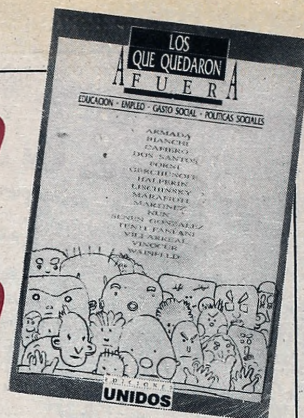 LOS
QUE QUEDARON
AFUERA
EDUCACION - EMPLEO - GASTO SOCIAL - POLITICAS SOCIALES
ARMADA
BIANCHI
CAFIERO
DOS SANTOS
FORNI
GERCHUNOFF
HALPERIN
LESCHINSKY
MARAFIOTI
MARTINEZ
NUN
SENEN GONZALEZ
TENTI FANFANI
VILLARREAL
VINOCUR
WAINFELD
EDICIONES
UNIDOS